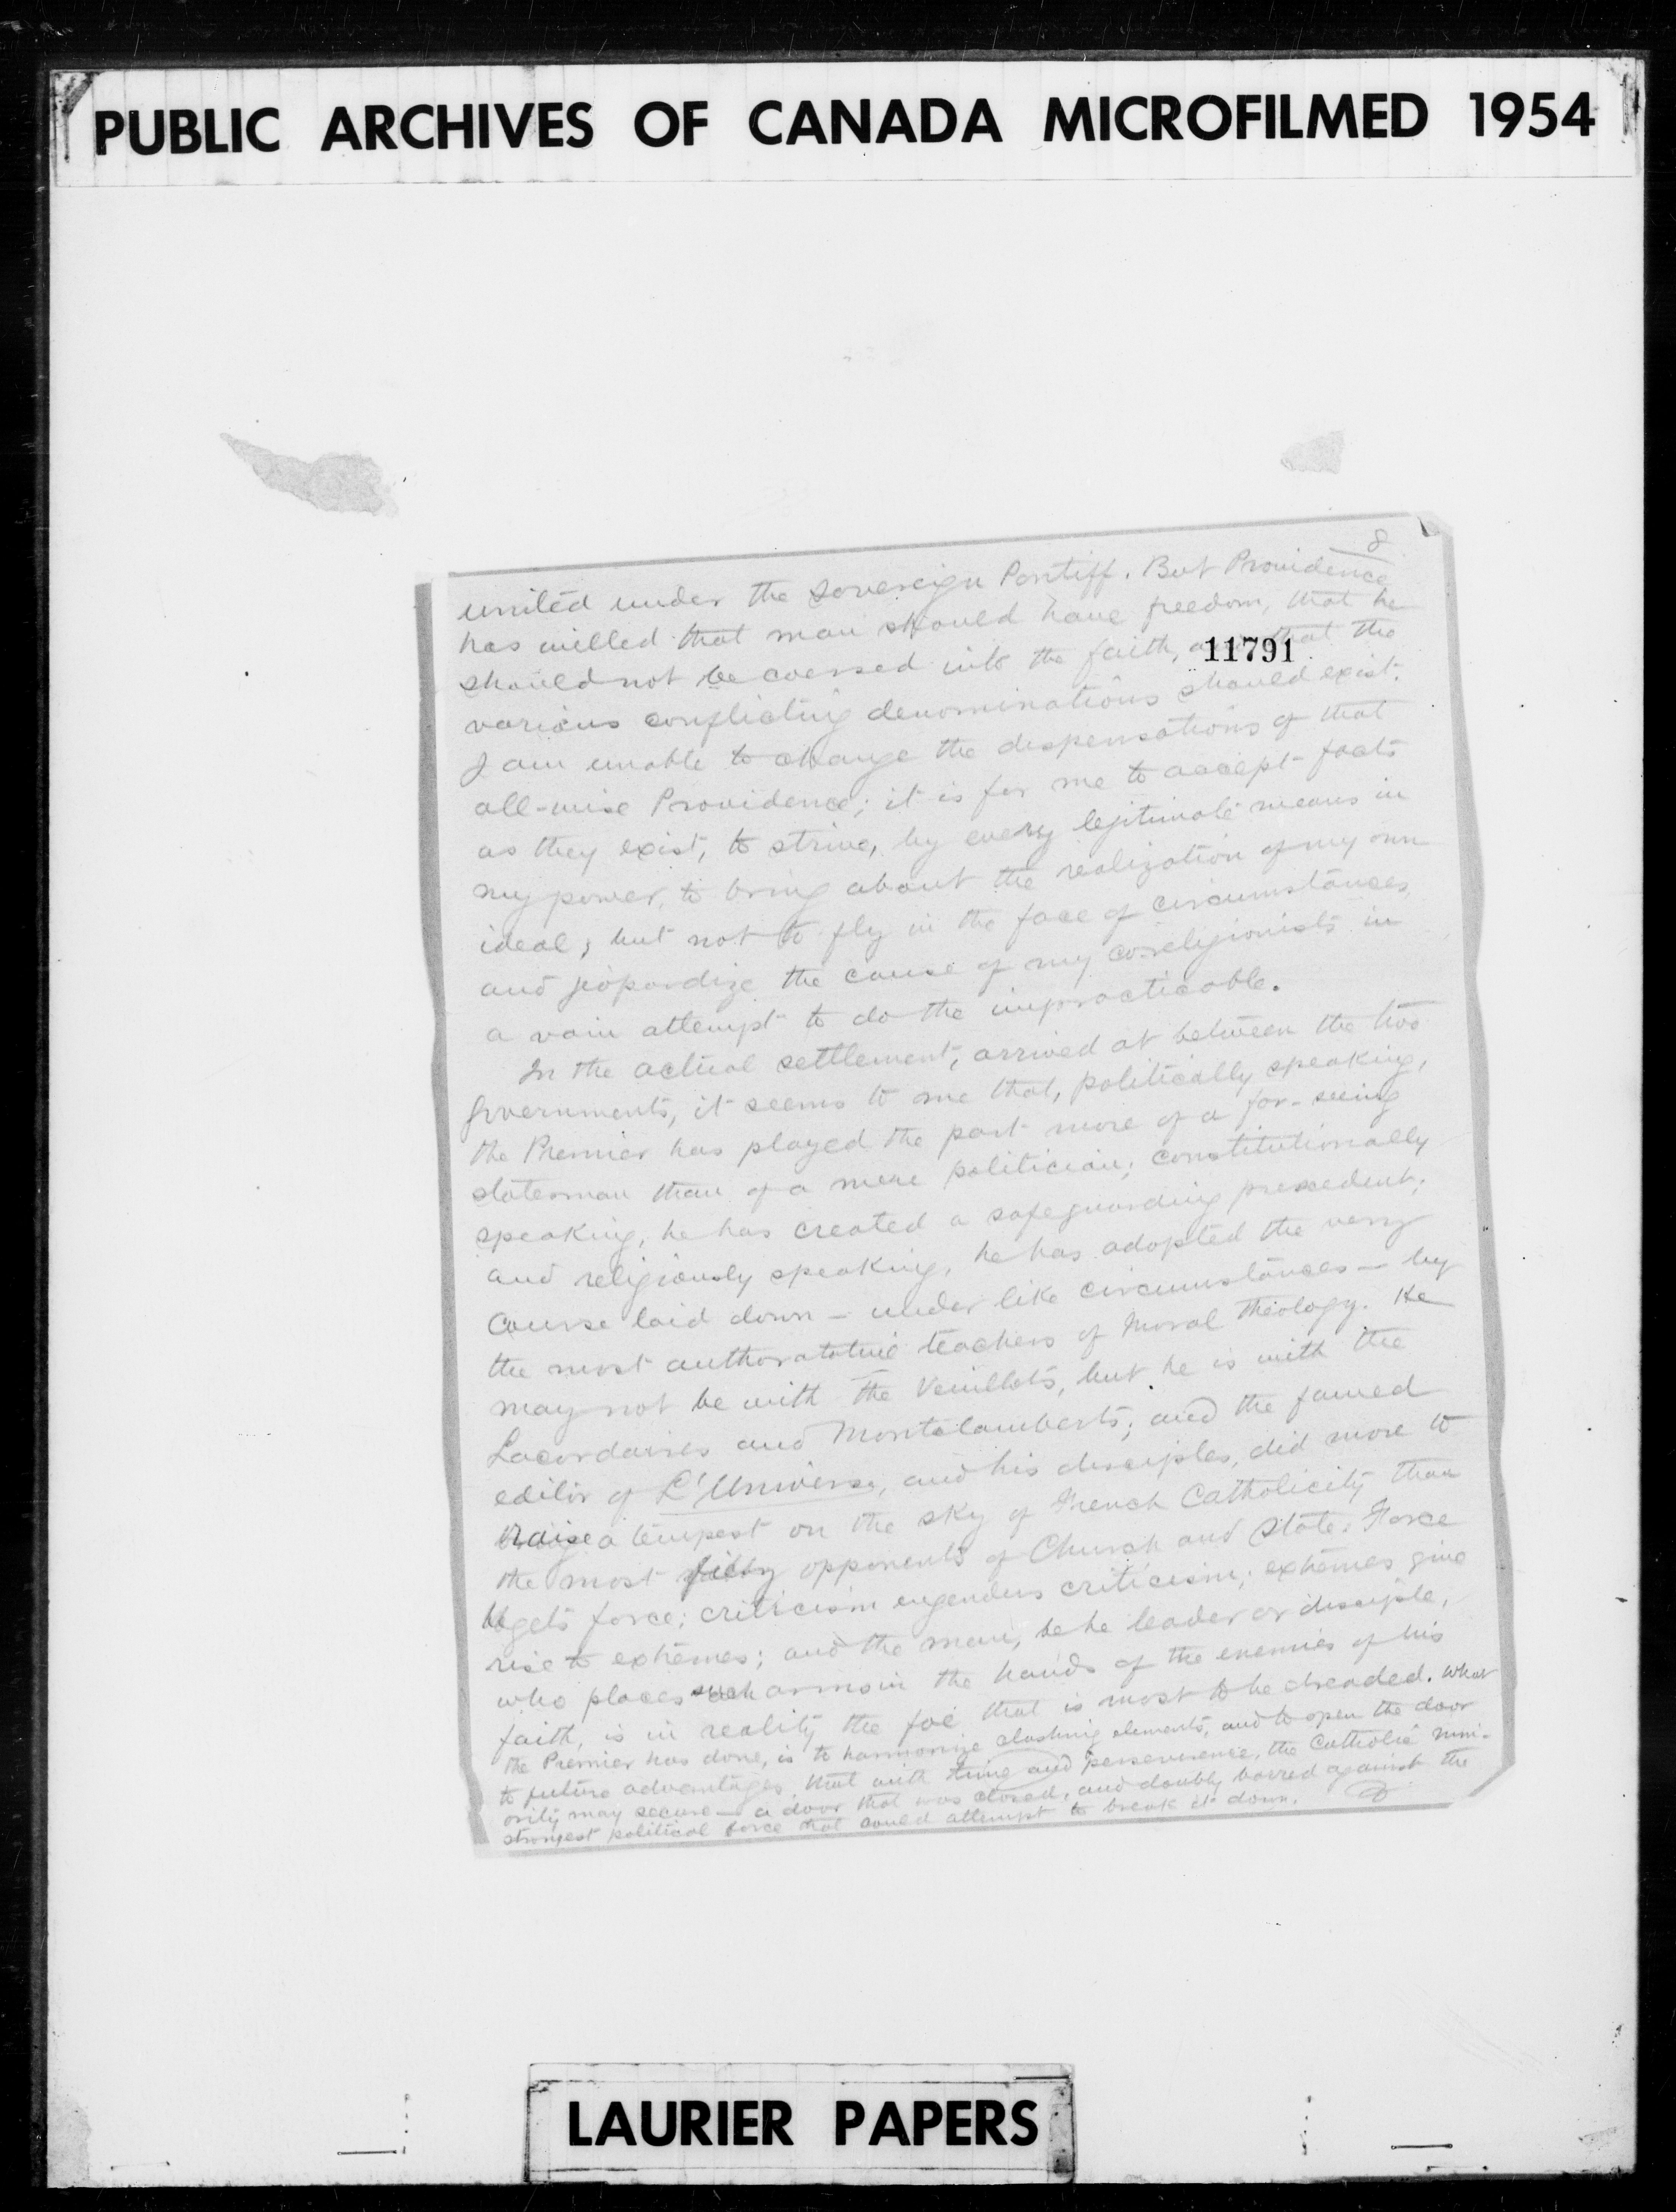 PUBLIC ARCHIVES OF CANADA MICROFILMED 1954
8
united under the Sovereign Pontiff. But Providence
has willed that man should have freedom, that he
should not be coersed into the faith, and that the
11791
various conflicting denominations should exist.
I am unable to change the dispensations of that
all-wise Providence; it is for me to accept facts
as they exist, to strive, by every legitimate means in
my power, to bring about the realization of my own
ideal; but not to fly in the face of circumstances,
and jeopardize the cause of my co-religionists in
a vain attempt to do the impracticable.
In the actual settlement, arrived at between the two
governments, it seems to me that, politically speaking,
the Premier has played the part more of a far-seeing
statesman than of a mere politician; constitutionally
speaking, he has created a safeguarding precedent;
and religiously speaking, he has adopted the very
course laid down – under like circumstances – by
the most authoratative teachers of Moral Theology. He
may not be with the Veuillots, but he is with the
Lacordaires and Montalamberts; and the famed
editor of L'Univers, and his disciples, did more to
raise a tempest on the sky of French Catholicity than
the most opponents of Church and State. Force
begets force; criticism engenders criticism; extremes give
rise to extremes; and the man, be he leader or disciple,
who places such arms in the hands of the enemies of his
faith, is in reality the foe that is most to be dreaded. What
the Premier has done, is to harmonize clashing elements, and to open the door
to future advantages that with time and perseverence, the Catholic min-
ority may secure – a door that was closed, and doubly barred against the
strongest political force that could attempt to break it down.
LAURIER PAPERS